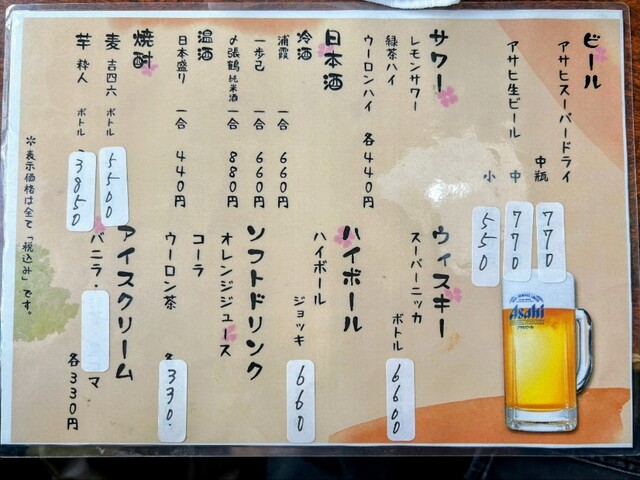 ビール
アサヒスーパードライ
中瓶 770
アサヒ生ビール
中 770
小 550
サワー
レモンサワー
緑茶ハイ
ウーロンハイ 各440円
日本酒
冷酒
浦霞 一合 660円
一歩己 一合 660円
〆張鶴 純米酒 一合 880円
温酒
日本盛り 一合 440円
焼酎
麦 吉四六 ボトル 5500
芋 粋人 ボトル 3850
ウィスキー
スーパーニッカ
ボトル 6600
ハイボール
ハイボール
ジョッキ 660
ソフトドリンク
オレンジジュース
コーラ
ウーロン茶 330.
アイスクリーム
バニラ・ マ 各330円
＊表示価格は全て「税込み」です。
Asahi